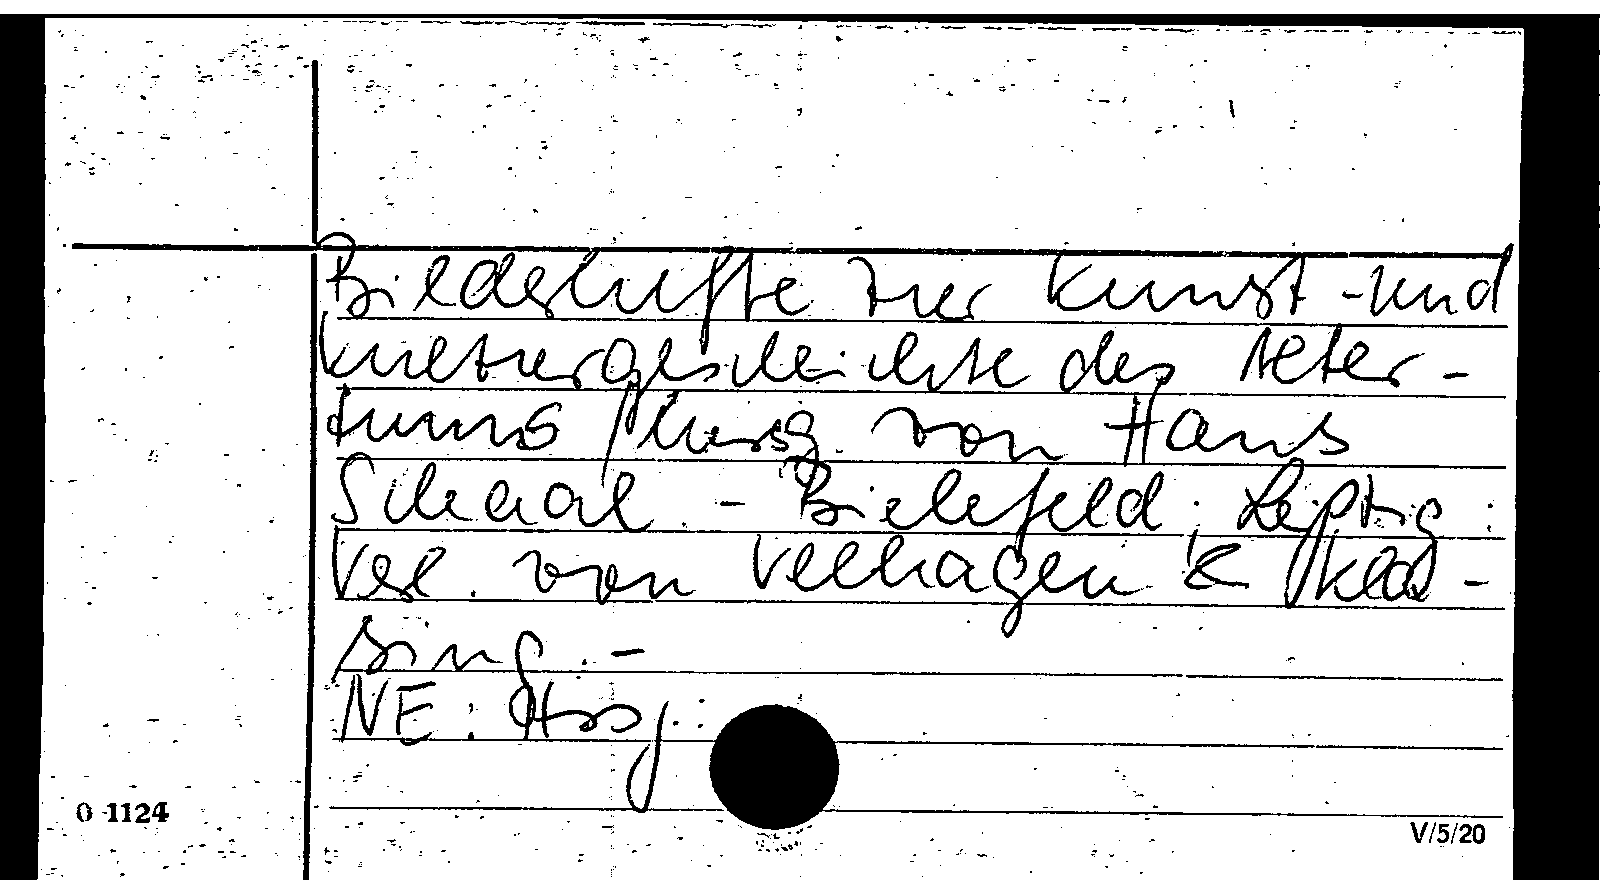 Bilderhefte zur Kunst- und
Kulturgeschichte des Alter-
tums / hrsg. von Hans
Schaal - Bielefeld ; Leipzig :
Verl. von Velhagen & Klas-
sing. -
NE: Hrsg.:
0 1124
V/5/20